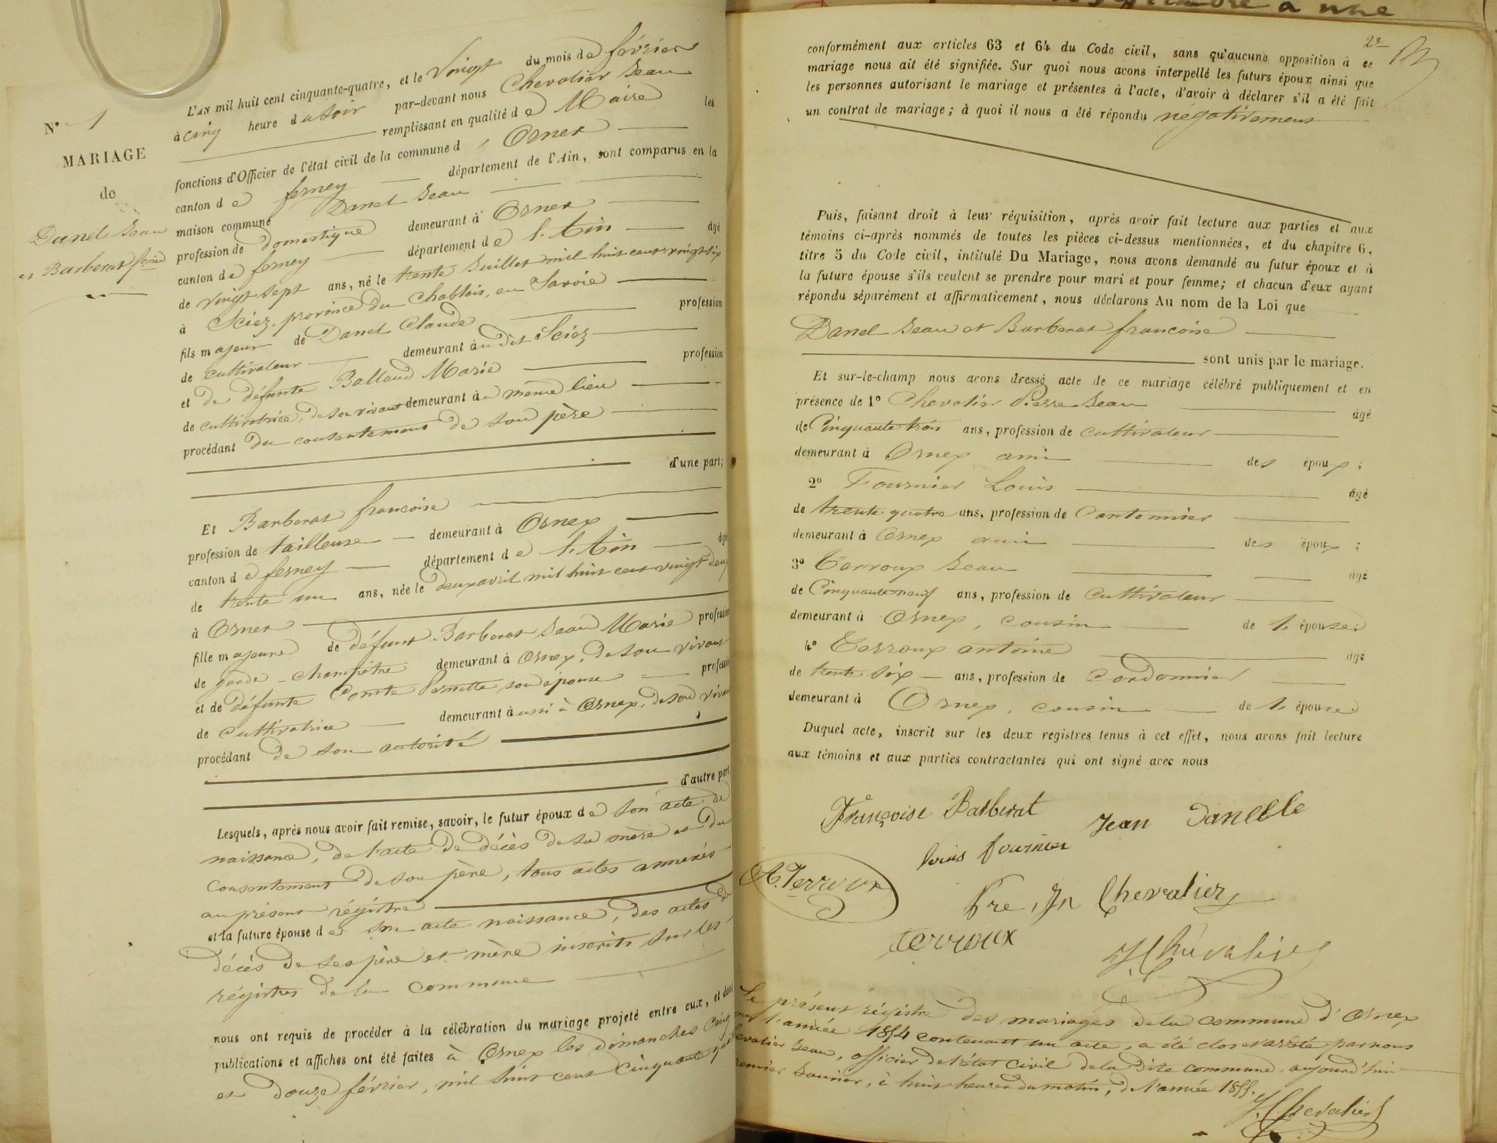 N° 1
MARIAGE
de
Danel Jean
et Barberat fçoise
L'AN mil huit cent cinquante-quatre, et le Vingt du mois de février
à cinq heure du soir par-devant nous Chevalier Jean
remplissant en qualité de Maire les
fonctions d'Officier de l'état civil de la commune d'Ornex
canton de ferney département de l'Ain, sont comparus en la
maison commune Danel Jean
profession de domestique demeurant à Ornex
canton de ferney département de l'Ain âgé
de vingt sept ans, né le trente Juillet mil huit cent vingt six
à Sciez province du Chablais, en Savoie
fils majeur de Danel Claude profession
de cultivateur demeurant au dit Sciez
et de défunte Balland Marie profession
de cultivatrice, de son vivant demeurant au même lieu
procédant du consentement de son père
d'une part;
Et Barberat françoise
profession de tailleuse demeurant à Ornex
canton de ferney département de l'Ain âgé
de trente un ans, née le deux avril mil huit cent vingt deux
à Ornex
fille majeure de défunt Barberat Jean Marie profession
de garde-champêtre demeurant à Ornex, de son vivant
et de défunte Comte Pernette, son épouse profession
de cultivatrice demeurant aussi à Ornex, de son vivant
procédant de son autorité
d'autre part
Lesquels, après nous avoir fait remise, savoir, le futur époux de son acte de
naissance, de l'acte de décès de sa mère et du
consentement de son père, tous actes annexés
au présent régistre
et la future épouse de son acte naissance, des actes de
décès de ses père et mère inscrits sur les
régistres de la commune
nous ont requis de procéder à la célébration du mariage projeté entre eux, et dont
publications et affiches ont été faites à Ornex les dimanches cinq
et douze février, mil huit cent cinquante quatre
22
conformément aux articles 63 et 64 du Code civil, sans qu'aucune opposition à ce
mariage nous ait été signifiée. Sur quoi nous avons interpellé les futurs époux ainsi que
les personnes autorisant le mariage et présentes à l'acte, d'avoir à déclarer s'il a été fait
un contrat de mariage; à quoi il nous a été répondu négativement
Puis, faisant droit à leur réquisition, après avoir fait lecture aux parties et aux
témoins ci-après nommés de toutes les pièces ci-dessus mentionnées, et du chapitre 6,
titre 5 du Code civil, intitulé Du Mariage, nous avons demandé au futur époux et à
la future épouse s'ils veulent se prendre pour mari et pour femme; et chacun d'eux ayant
répondu séparément et affirmativement, nous déclarons Au nom de la Loi que
Danel Jean et Barberat francoise
sont unis par le mariage.
Et sur-le-champ nous avons dressé acte de ce mariage célébré publiquement et en
présence de 1° Chevalier Pierre Jean âgé
de Cinquante trois ans, profession de cultivateur
demeurant à Ornex ami des époux;
2° Fournier Louis âgé
de trente quatre ans, profession de Cantonnier
demeurant à Ornex ami des époux;
3° Terroux Jean âgé
de Cinquante neuf ans, profession de cultivateur
demeurant à Ornex, cousin de l'épouse;
4° Terroux antoine âgé
de trente six ans, profession de Cordonnier
demeurant à Ornex, cousin de l'épouse
Duquel acte, inscrit sur les deux registres tenus à cet effet, nous avons fait lecture
aux témoins et aux parties contractantes qui ont signé avec nous
Françoise Barberat Jean Danelle
louis fournier
A. Terroux
Pre. Jn Chevalier
terroux
J Chevalier
Le présent régistre des mariages de la commune d'Ornex
pour l'année 1854 contenant un acte, a été clos et arrêté par nous
Chevalier Jean, officier de l'état civil de la dite commune, aujourd'hui
premier Janvier, à huit heures du matin, de l'année 1855.
J. Chevalier